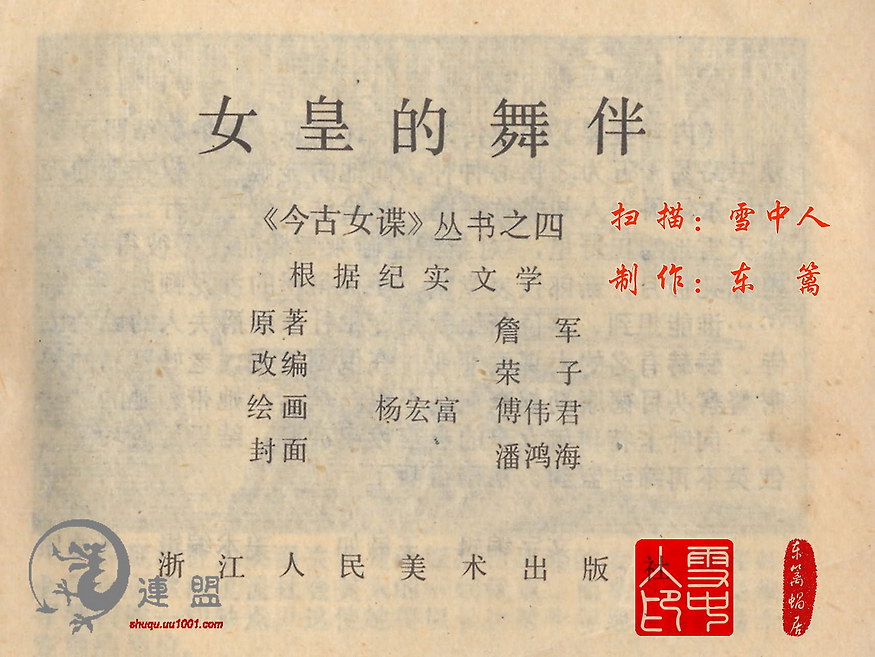 女皇的舞伴
《今古女谍》丛书之四
扫描：雪中人
根据纪实文学
制作：东篱
原著 詹军
改编 荣子
绘画 杨宏富 傅伟君
封面 潘鸿海
浙江人民美术出版社
連盟
shuqu.uu1001.com
雪中人印
东篱蜗居